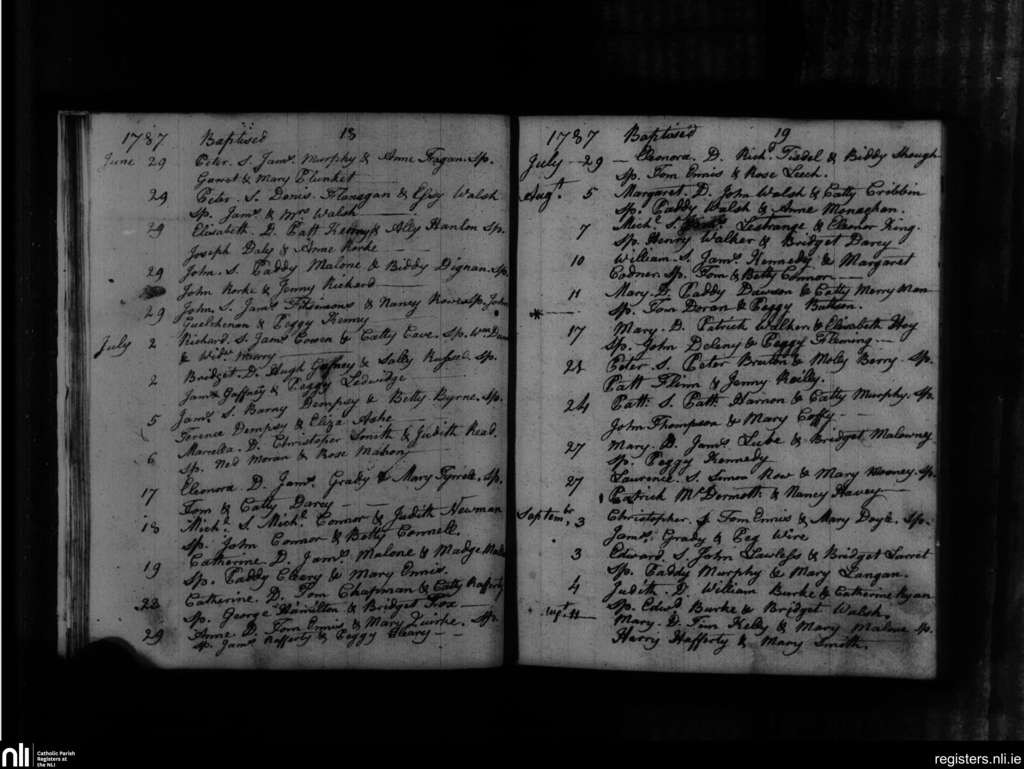 1787 Baptised 18
June 29 Peter. S. Jams. Murphy & Anne Fagan. Sp.
Garret & Mary Plunket
29 Peter. S. Denis Flanagan & Elsy Walsh
Sp. Jams. & Mrs Walsh
29 Elisabeth. D. Patt Kenny & Ally Hanlon Sp.
Joseph Daly & Anne Rorke
29 John. S. Paddy Malone & Biddy Dignan. Sp.
John Rorke & Jenny Richard
29 John. S. Jams. Fitsimons & Nancy Sp. John
& Peggy Kenny
July 2 Richard. S. Jams. Cowen & Catty Cave. Sp. Wm.
& Widw.
2 Bridget. D. Hugh Gafney & Sally Russel. Sp.
Jams. Gaffney & Peggy Ledwidge
5 Jams. S. Barny Dempsy & Betty Byrne. Sp.
Terence Dempsy & Eliza Ashe
6 D. Christopher Smith & Judith Read.
Sp. Ned Moran & Rose Mahon
17 Eleonora D. Jams. Grady & Mary Tyrrele. Sp.
Tom & Catty Darcy
18 Michl. S. Michl. Connor & Judith Newman
Sp. John Connor & Betty Connell
19 Catherine. D. Jams. Malone & Madge
Sp. Paddy Cleary & Mary Ennis.
22 Catherine. D. Tom Chapman & Catty Rafferty
Sp. George Hamilton & Bridget Fox
29 Anne. D. Tom Ennis & Mary Quirke. Sp.
Sp. Jams. Rafferty & Peggy Cleary
1787 Baptised 19
July 29 Eleonora. D. Richd. Tisdel & Biddy
Sp. Tom Ennis & Rose Leech.
Augt. 5 Margaret. D. John Walsh & Catty Cribbin
Sp. Paddy Walsh & Anne Monaghan.
7 Mich. S. Jams. Lestrange & Eleanor King.
Sp. Henry Walker & Bridget Darcy
10 William. S. Jams. Kennedy & Margaret
Codner. Sp. Tom & Betty Connor
11 Mary. D. Paddy Dawson & Catty Merryman
Sp. Tom Doran & Peggy
17 Mary. D. Patrick Walker & Elisabeth Hoy
Sp. John Deleny & Peggy Fleming
21 Peter S. Peter Bruton & Moly Berry. Sp.
Patt Flinn & Jenny Reilly.
24 Patt. S. Patt. Harnon & Catty Murphy. Sp.
John Thompson & Mary Coffy
27 Mary. D. Jams. Lube & Bridget Malowney
Sp. Peggy Kennedy
27 Laurence. S. Simon Row & Mary Mooney. Sp.
Patrick McDermott & Nancy Havey
Septembr. 3 Christopher. S Tom Ennis & Mary Doyle. Sp.
Jams. Grady & Peg Wire
3 Edward S. John Lawless & Bridget
Sp. Paddy Murphy & Mary Langan.
4 Judith. D. William Burke & Catherine Ryan
Sp. Edwd. Burke & Bridget Walsh.
Augt. 11 Mary. D. Tim Kelly & Mary Malone Sp.
Harry Hafferty & Mary Smith.
nli Catholic Parish
Registers at
the NLI
registers.nli.ie